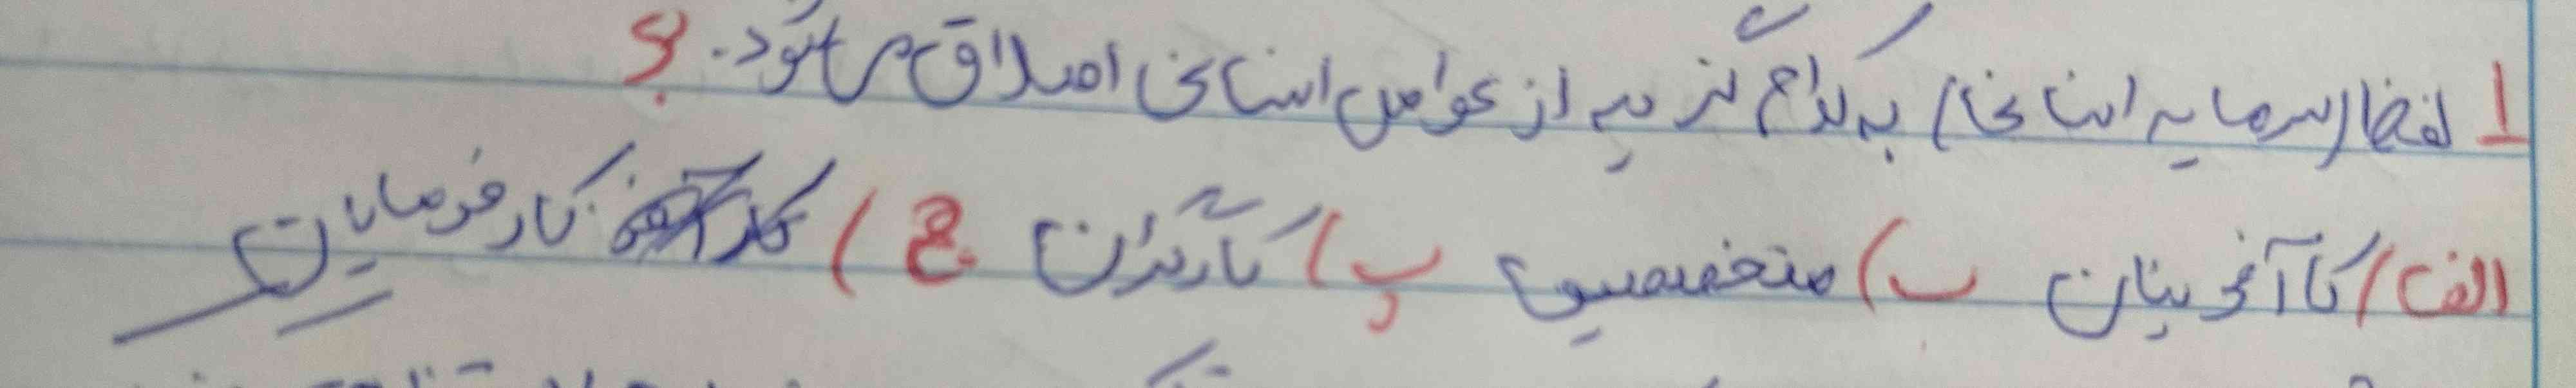 1 لفظ (سرمایه انسانی) به کدام گزینه از عوامل انسانی اطلاق می شود. ؟
الف) کارآفرینان ب) متخصصین پ) کارگران ج) کارفرمایان